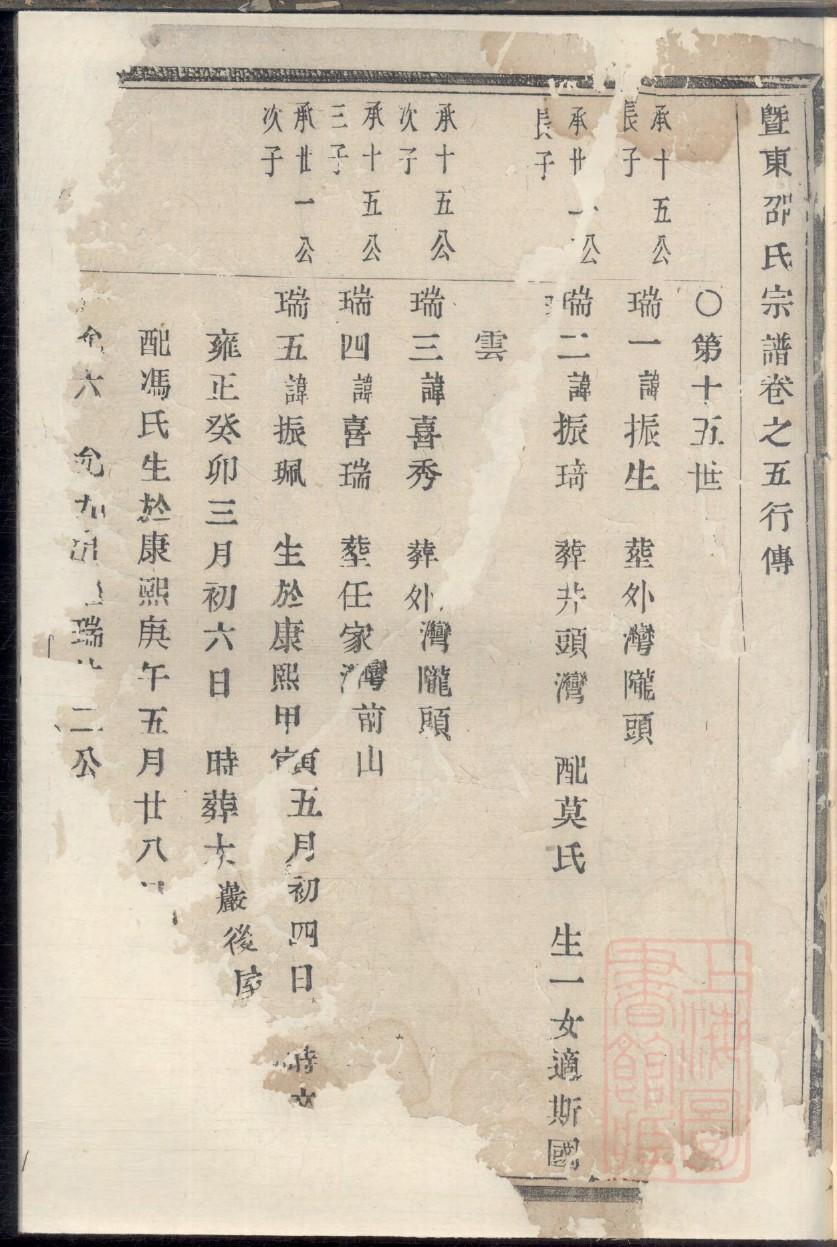 暨東邵氏宗譜卷之五行傳
〇第十五世
承十五公
長子
瑞一諱振生 塟外灣隴頭
承廿一公
長子
瑞二諱振琦 葬井頭灣 配莫氏 生一女適斯國
雲
承十五公
次子
瑞三諱喜秀 葬外灣隴頭
承十五公
三子
瑞四諱喜瑞 塟任家灣前山
承廿一公
次子
瑞五諱振珮 生於康熙甲寅五月初四日 時
雍正癸卯三月初六日 時葬大巖後
配馮氏生於康熙庚午五月廿八
允六 允九 瑞 二公
上海圖書館藏